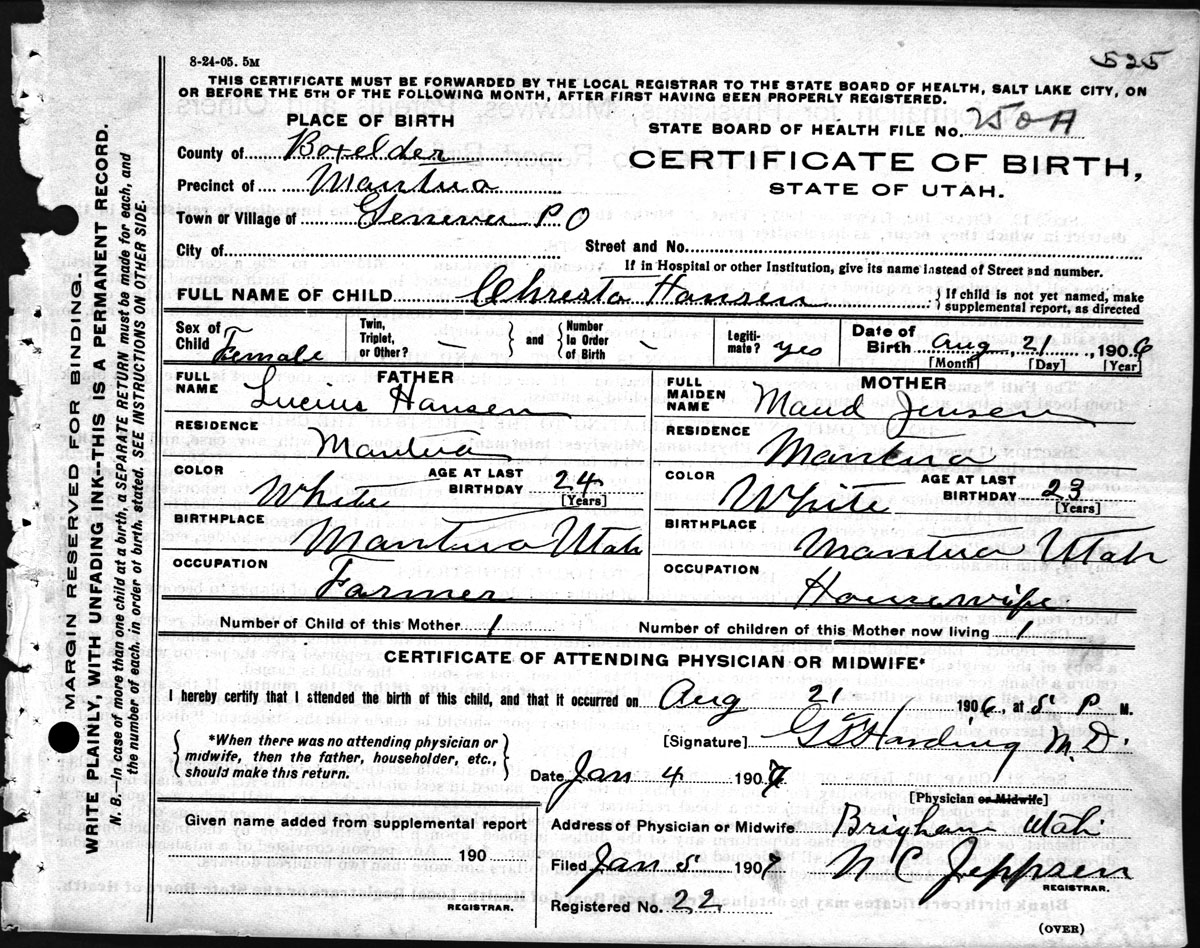 8-24-05. 5M
525
THIS CERTIFICATE MUST BE FORWARDED BY THE LOCAL REGISTRAR TO THE STATE BOARD OF HEALTH, SALT LAKE CITY, ON
OR BEFORE THE 5TH OF THE FOLLOWING MONTH, AFTER FIRST HAVING BEEN PROPERLY REGISTERED.
PLACE OF BIRTH
STATE BOARD OF HEALTH FILE NO. 250A
County of Boxelder
CERTIFICATE OF BIRTH,
Precinct of Mantua
STATE OF UTAH.
Town or Village of P.O
City of Street and No.
If in Hospital or other Institution, give its name instead of Street and number.
FULL NAME OF CHILD Christa Hansen { If child is not yet named, make
supplemental report, as directed
Sex of Child Female
Twin, Triplet, or Other? —
} and {
Number In Order of Birth —
Legiti-mate? yes
Date of Birth Aug, 21, 1906
[Month] [Day] [Year]
FATHER
FULL NAME Lucius Hansen
RESIDENCE Mantua
COLOR White
AGE AT LAST BIRTHDAY 24 [Years]
BIRTHPLACE Mantua Utah
OCCUPATION Farmer
MOTHER
FULL MAIDEN NAME Maud Jensen
RESIDENCE Mantua
COLOR White
AGE AT LAST BIRTHDAY 23 [Years]
BIRTHPLACE Mantua Utah
OCCUPATION Housewife
Number of Child of this Mother 1 Number of children of this Mother now living 1
CERTIFICATE OF ATTENDING PHYSICIAN OR MIDWIFE*
I hereby certify that I attended the birth of this child, and that it occurred on Aug 21 1906, at 5 P M.
*When there was no attending physician or
midwife, then the father, householder, etc.,
should make this return.
[Signature] Harding M.D.
Date Jan 4 1907
[Physician or Midwife]
Given name added from supplemental report
190
REGISTRAR.
Address of Physician or Midwife Brigham Utah
Filed Jan 5 1907 N C Jeppsen
REGISTRAR.
Registered No. 22
(OVER)
MARGIN RESERVED FOR BINDING.
WRITE PLAINLY, WITH UNFADING INK-THIS IS A PERMANENT RECORD.
N. B.—In case of more than one child at a birth, a SEPARATE RETURN must be made for each, and
the number of each, in order of birth, stated. SEE INSTRUCTIONS ON OTHER SIDE.